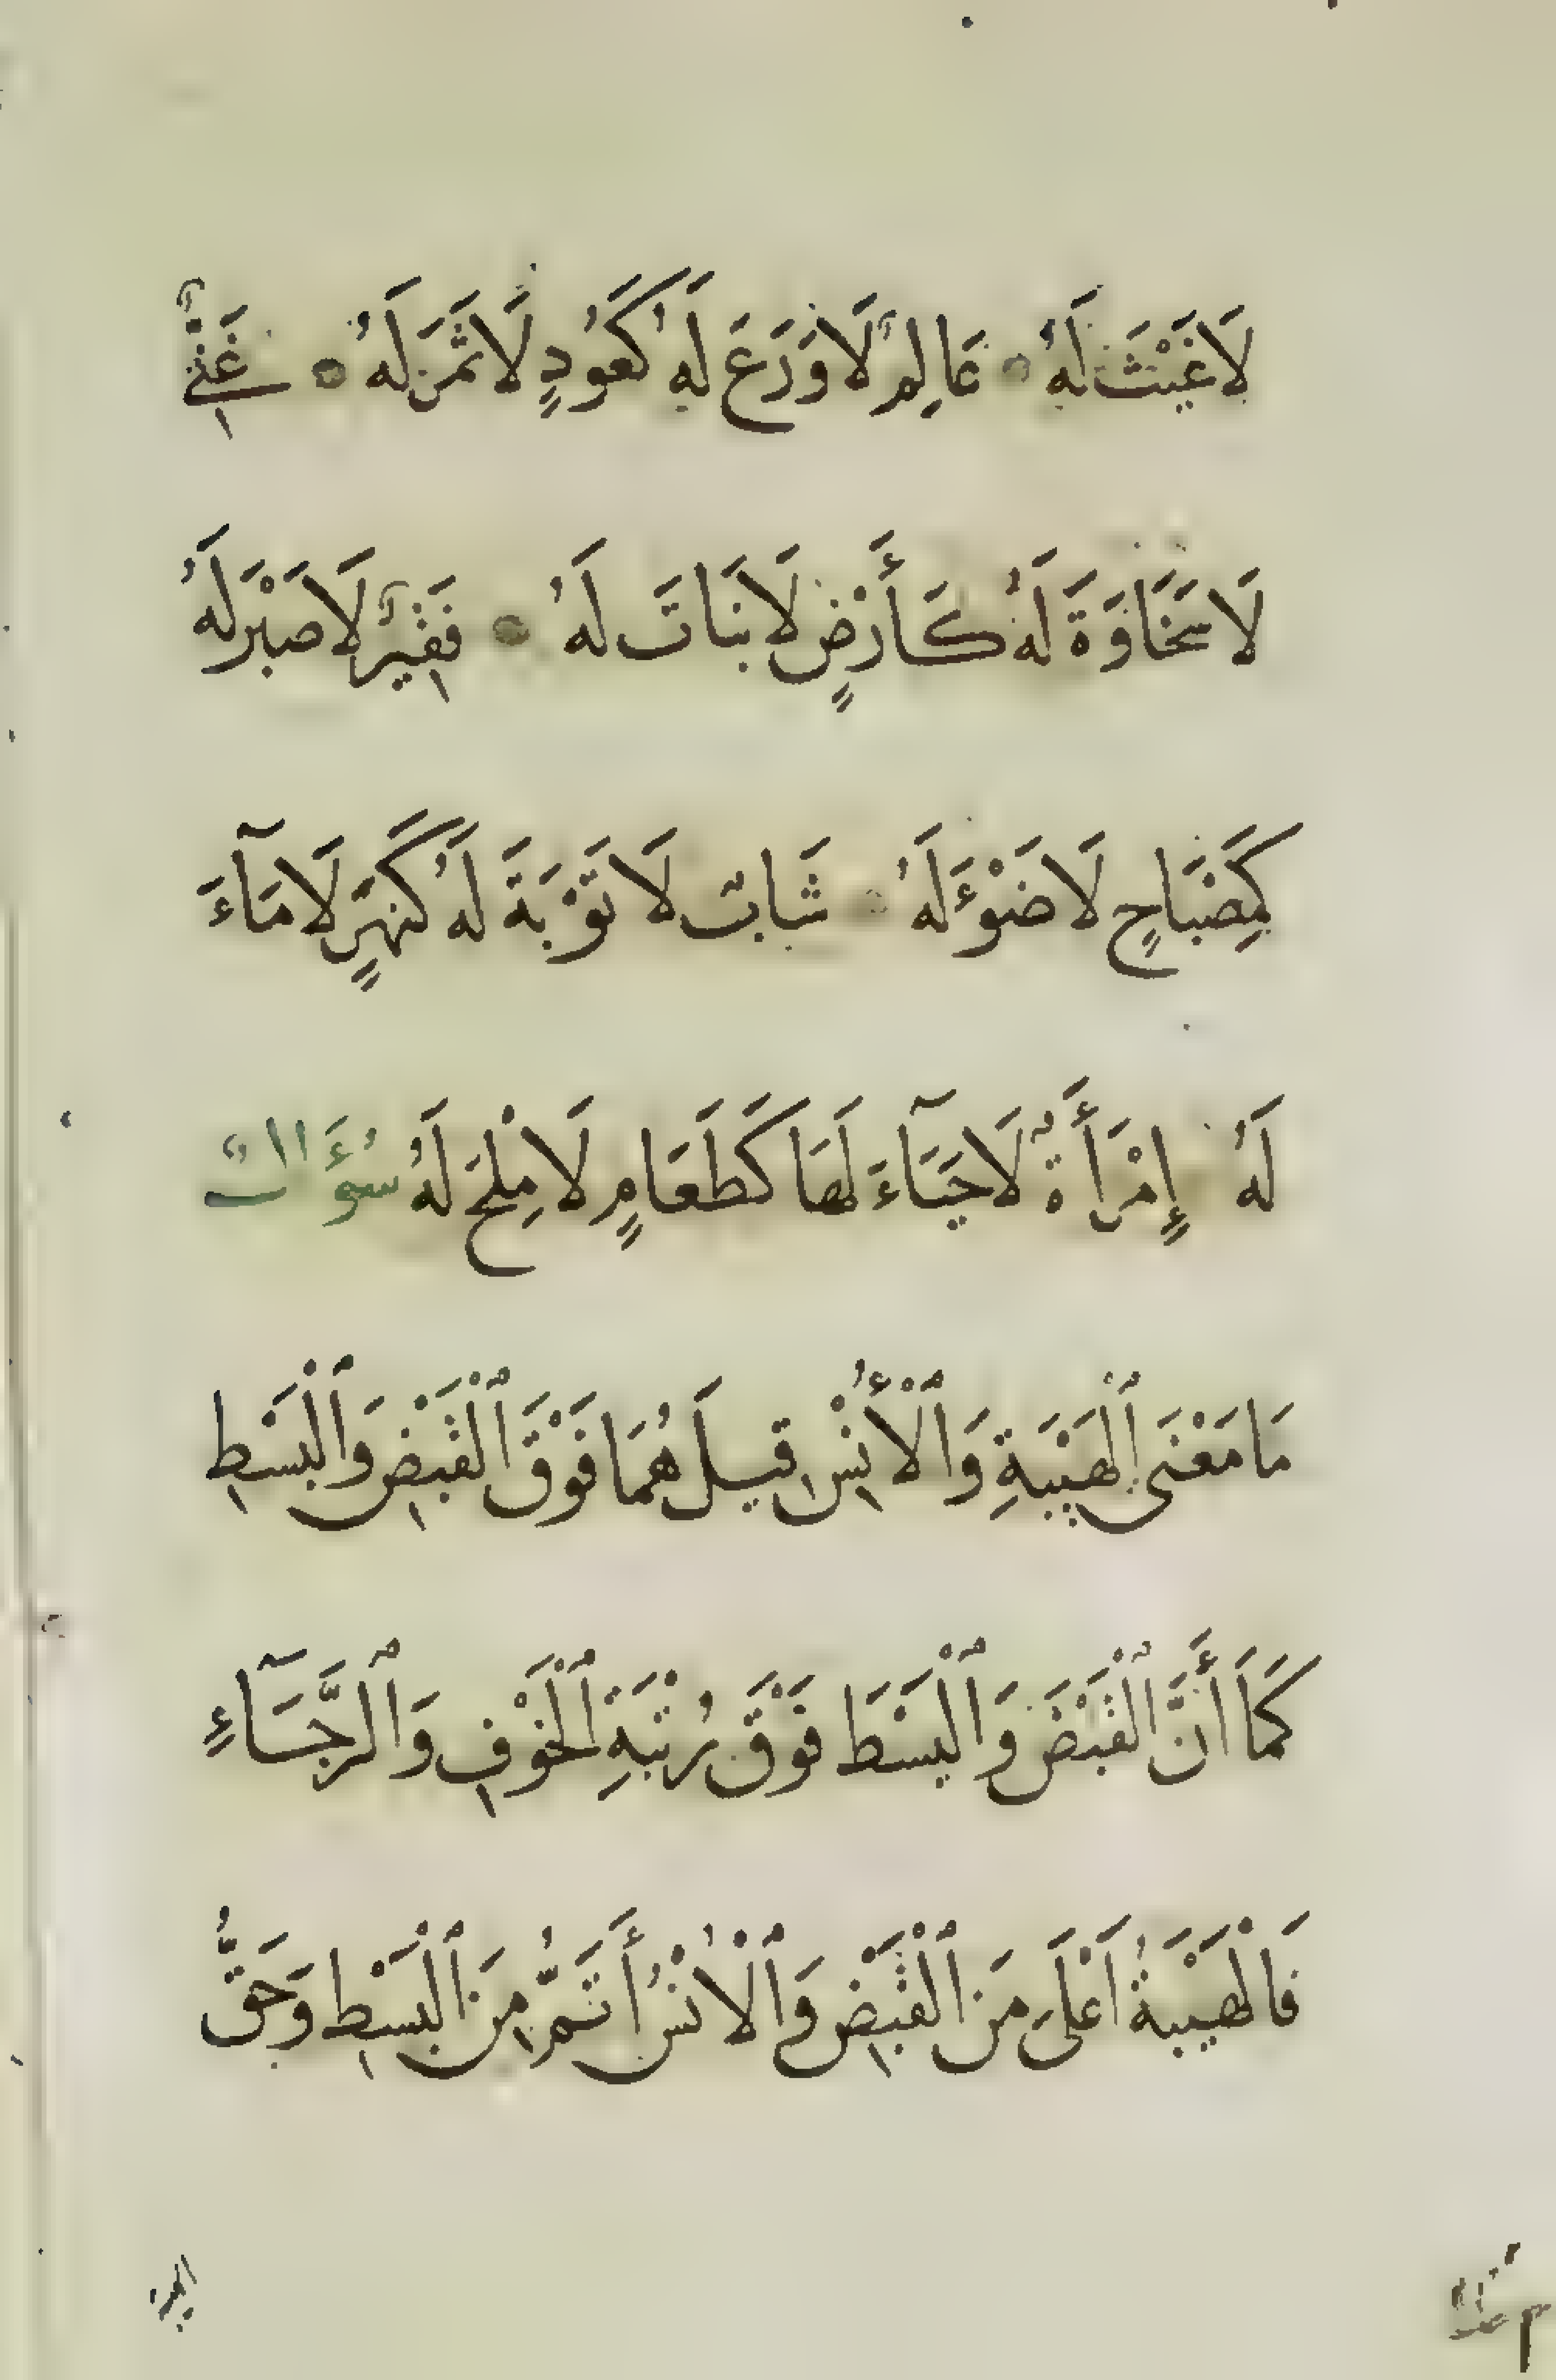 لَا غَيْثَ لَهُ ۞ عَالِمٌ لَا وَرَعَ لَهُ كَعُودٍ لَا ثَمَنَ لَهُ ۞ غَنِيٌّ
لَا سَخَاوَةَ لَهُ كَأَرْضٍ لَا نَبَاتَ لَهُ ۞ فَقِيْرٌ لَا صَبْرَ لَهُ
كَمِصْبَاحٍ لَا ضَوْءَ لَهُ ۞ شَابٌّ لَا تَوْبَةَ لَهُ كَنَهَرٍ لَا مَآءَ
لَهُ إِمْرَأَةٌ لَا حَيَآءَ لَهَا كَطَعَامٍ لَا مِلْحَ لَهُ سُؤَالٌ
مَا مَعْنَى ٱلْهَيْبَةِ وَٱلْأُنْسِ قِيلَ هُمَا فَوْقَ ٱلْقَبْضِ وَٱلْبَسْطِ
كَمَا أَنَّ ٱلْقَبْضَ وَٱلْبَسْطَ فَوْقَ رُتْبَةِ ٱلْخَوْفِ وَٱلرَّجَآءِ
فَالْهَيْبَةُ أَعْلَى مِنَ ٱلْقَبْضِ وَٱلْأُنْسُ أَتَمُّ مِنَ ٱلْبَسْطِ وَحَقُّ